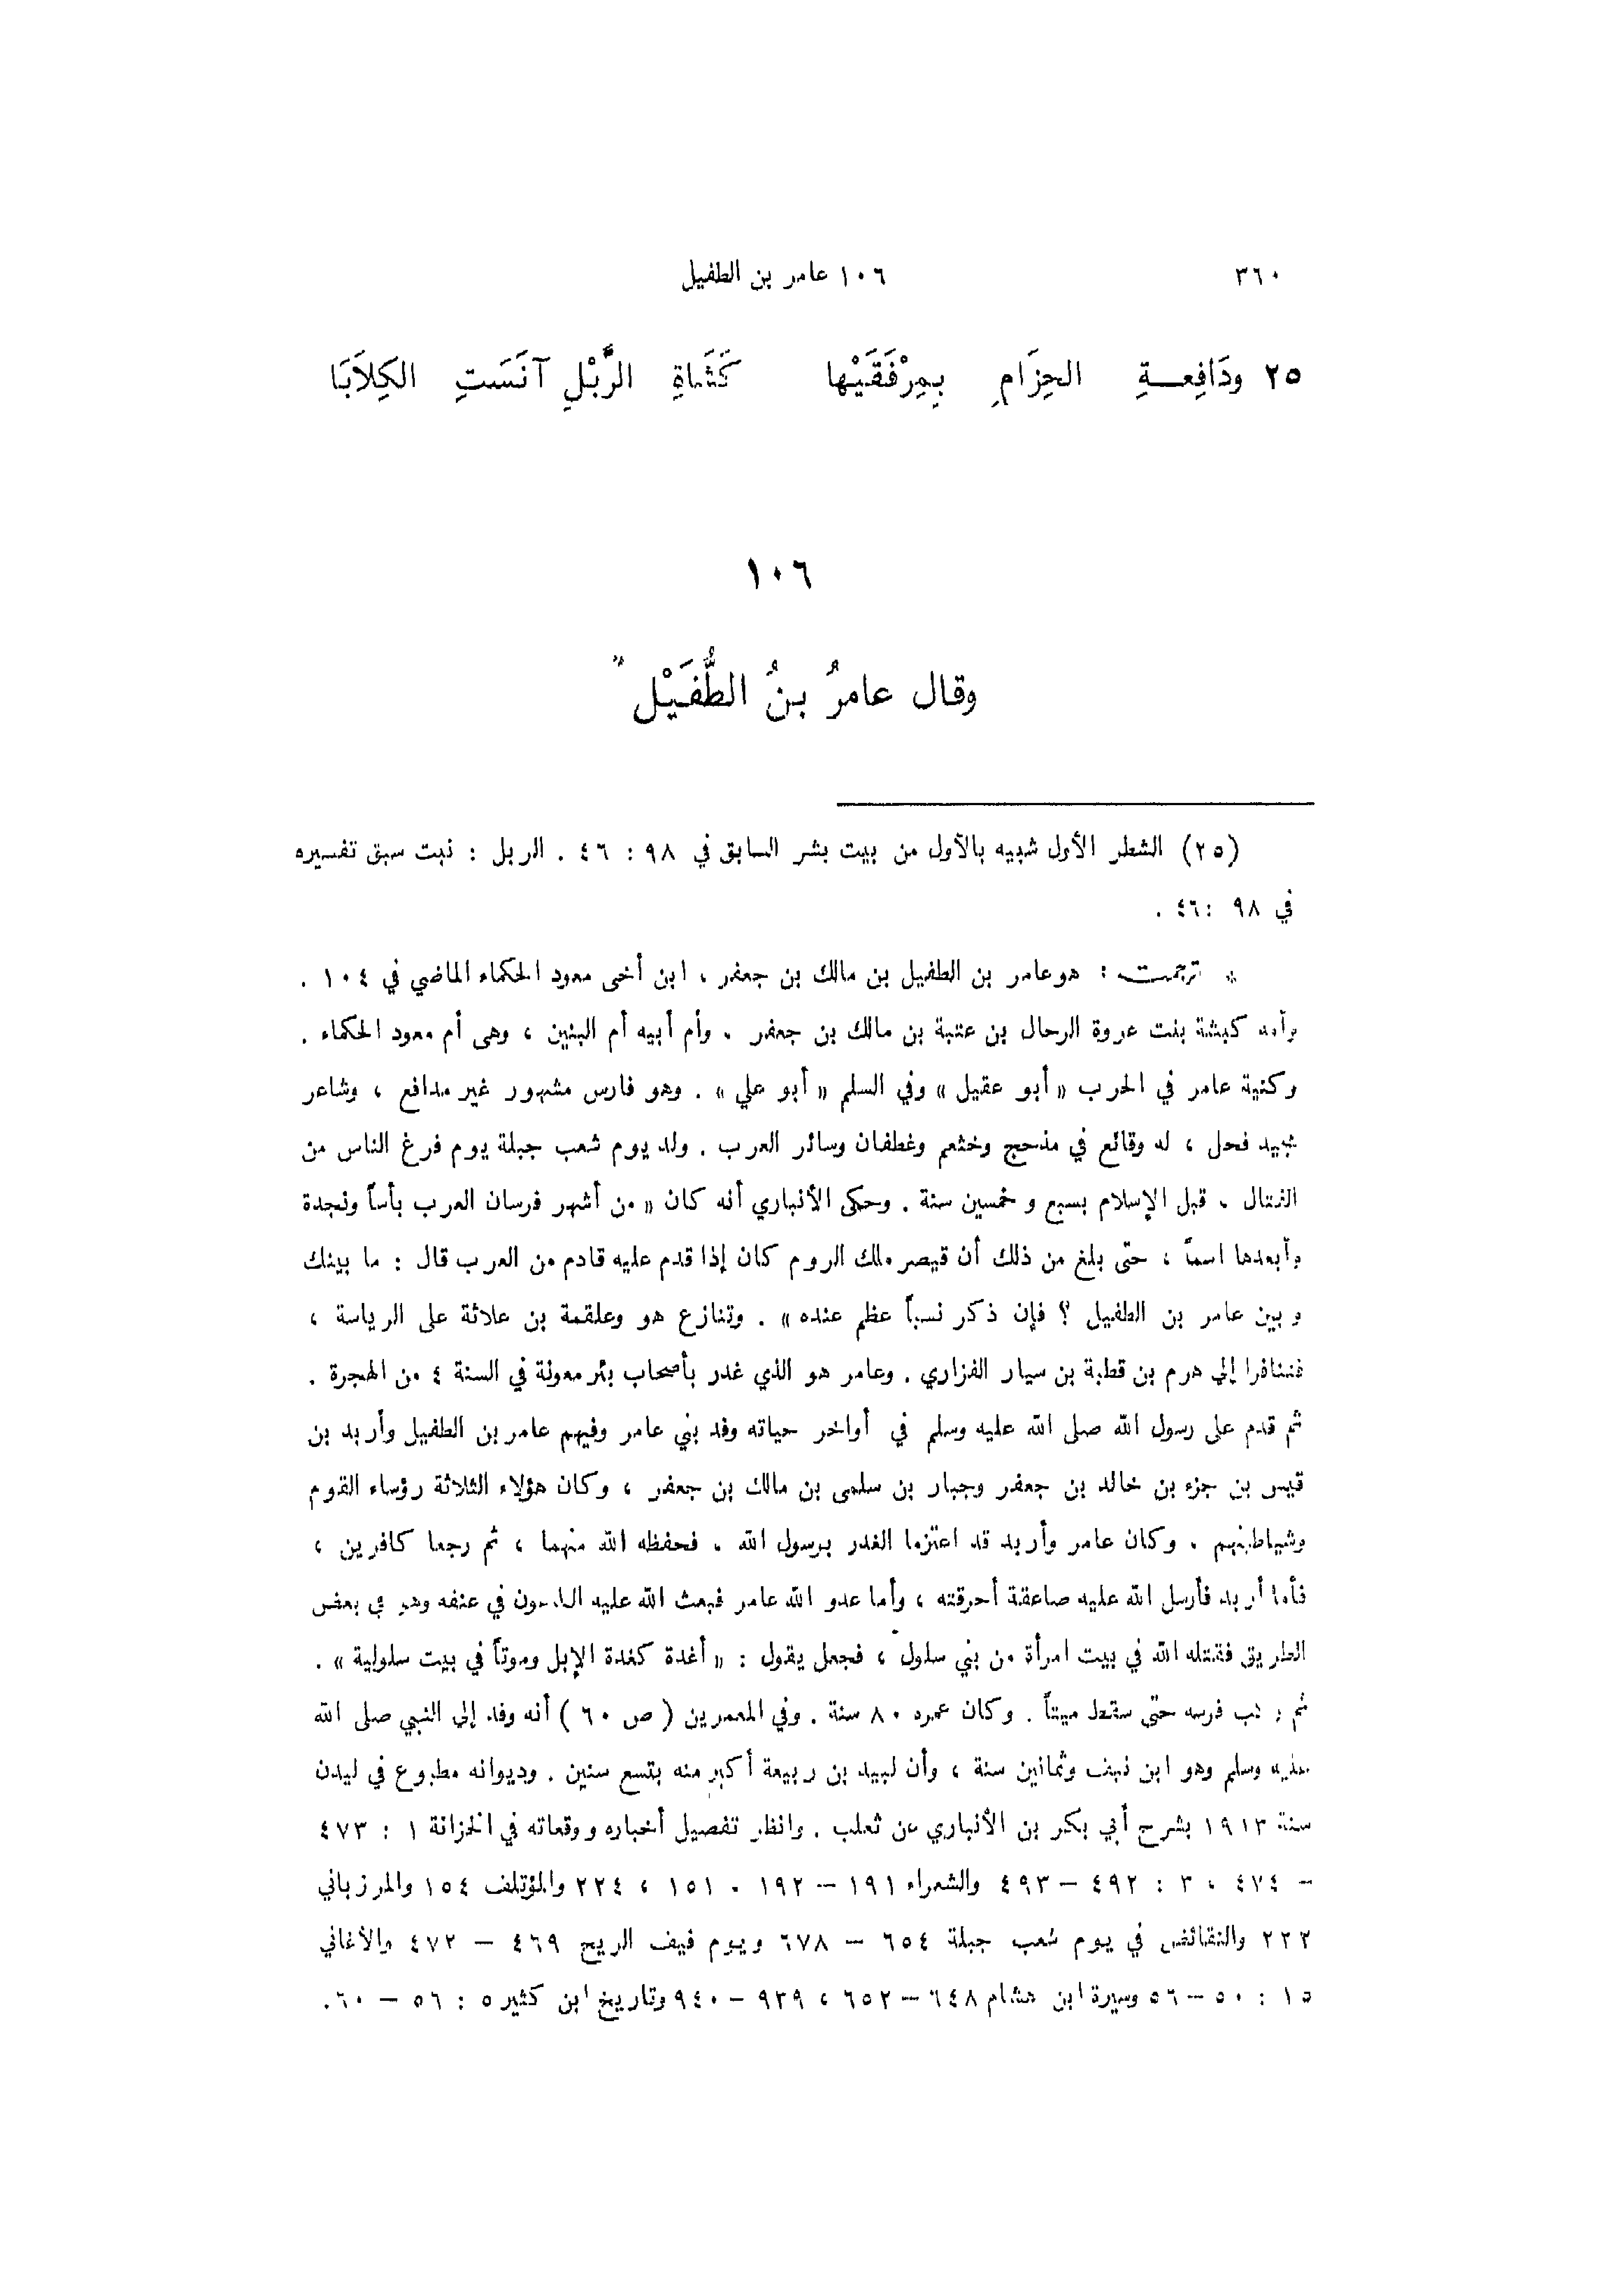 ٣٦٠ ١٠٦ عامر بن الطفيل
٢٥ ودَافِعـــةِ الحِزَامِ بِمِرْفَقَيْها كَشَاةِ الرَّبْلِ آنَسَتِ الكِلاَبَا
١٠٦
وقال عامرُ بنُ الطُّفَيْل *
(٢٥) الشطر الأول شبيه بالأول من بيت بشر السابق في ٩٨ : ٤٦ . الربل : نبت سبق تفسيره
في ٩٨ :٤٦ .
* ترجمته : هو عامر بن الطفيل بن مالك بن جعفر ، ابن أخى معود الحكماء الماضي في ١٠٤ .
وأمه كبشة بنت عروة الرحال بن عتبة بن مالك بن جعفر . وأم أبيه أم البنين ، وهى أم معود الحكماء .
وكنية عامر في الحرب « أبو عقيل » وفي السلم « أبو علي » . وهو فارس مشهور غير مدافع ، وشاعر
مجيد فحل ، له وقائع في مذحج وخثعم وغطفان وسائر العرب . ولد يوم شعب جبلة يوم فرغ الناس من
القتال ، قبل الإسلام بسبع وخمسين سنة . وحكى الأنباري أنه كان « من أشهر فرسان العرب بأساً ونجدة
وأبعدها اسماً ، حتى بلغ من ذلك أن قيصر ملك الروم كان إذا قدم عليه قادم من العرب قال : ما بينك
وبين عامر بن الطفيل ؟ فإن ذكر نسباً عظم عنده » . وتنازع هو وعلقمة بن علاثة على الرياسة ،
فتنافرا إلى هرم بن قطبة بن سيار الفزاري . وعامر هو الذي غدر بأصحاب بئر معونة في السنة ٤ من الهجرة .
ثم قدم على رسول الله صلى الله عليه وسلم في أواخر حياته وفد بني عامر وفيهم عامر بن الطفيل وأربد بن
قيس بن جزء بن خالد بن جعفر وجبار بن سلمى بن مالك بن جعفر ، وكان هؤلاء الثلاثة رؤساء القوم
وشياطينهم . وكان عامر وأربد قد اعتزما الغدر برسول الله ، فحفظه الله منهما ، ثم رجعا كافرين ،
فأما أربد فأرسل الله عليه صاعقة أحرقته ، وأما عدو الله عامر فبعث الله عليه الطاعون في عنقه وهو في بعض
الطريق فقتله الله في بيت امرأة من بني سلول ، فجعل يقول : « أغدة كغدة الإبل وموتاً في بيت سلولية » .
ثم ركب فرسه حتى سقط ميتاً . وكان عمره ٨٠ سنة . وفي المعمرين ( ص ٦٠ ) أنه وفد إلى النبي صلى الله
عليه وسلم وهو ابن نيف وثمانين سنة ، وأن لبيد بن ربيعة أكبر منه بتسع سنين . وديوانه مطبوع في ليدن
سنة ١٩١٣ بشرح أبي بكر بن الأنباري عن ثعلب . وانظر تفصيل أخباره ووقعاته في الخزانة ١ : ٤٧٣
– ٤٧٤ ، ٣ : ٤٩٢ – ٤٩٣ والشعراء ١٩١ – ١٩٢ ، ١٥١ ، ٢٢٤ والمؤتلف ١٥٤ والمرزباني
٢٢٢ والنقائض في يوم شعب جبلة ٦٥٤ – ٦٧٨ ويوم فيف الريح ٤٦٩ – ٤٧٢ والأغاني
١٥ : ٥٠ – ٥٦ وسيرة ابن هشام ٦٤٨ – ٦٥٢ ، ٩٣٩ – ٩٤٠ وتاريخ ابن كثير ٥ : ٥٦ – ٦٠ .